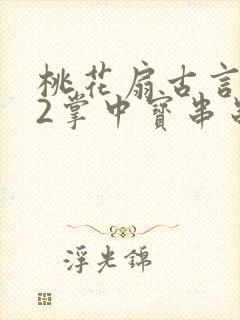 桃花扇古言
2掌中寳串
浮光錦